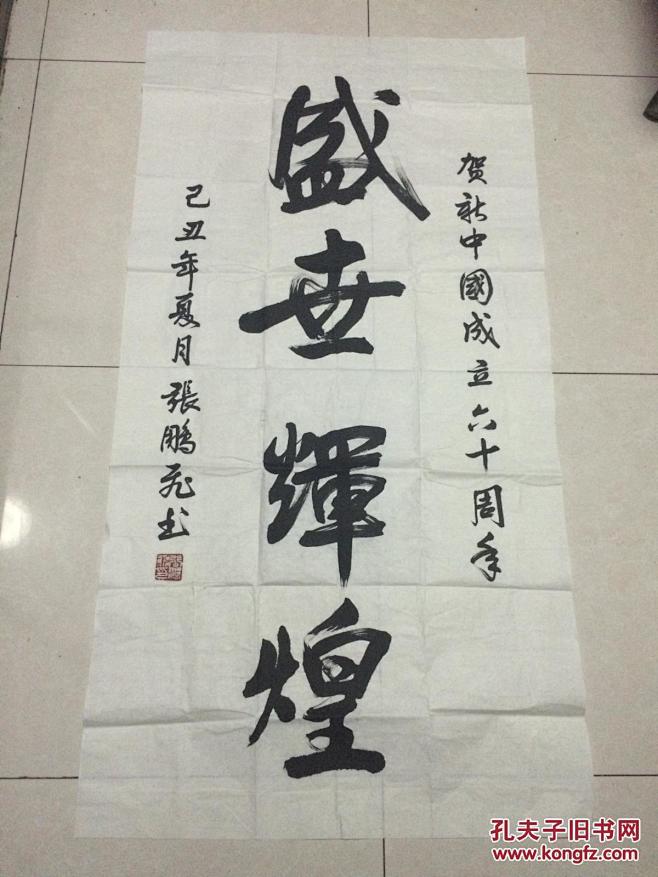 贺新中國成立六十周年
盛世輝煌
己丑年夏月張鵬飛书
孔夫子旧书网
www.kongfz.com